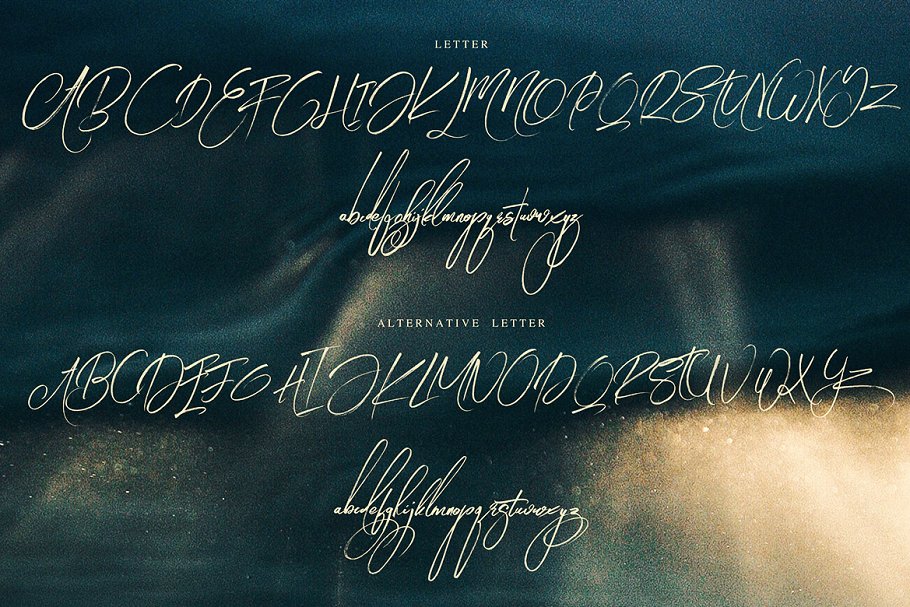 LETTER
ABCDEFGHIJKLMNOPQRSTUVWXYZ
abcdefghijklmnopqrstuvwxyz
ALTERNATIVE LETTER
ABCDEFGHIJKLMNOPQRSTUVWXYZ
abcdefghijklmnopqrstuvwxyz